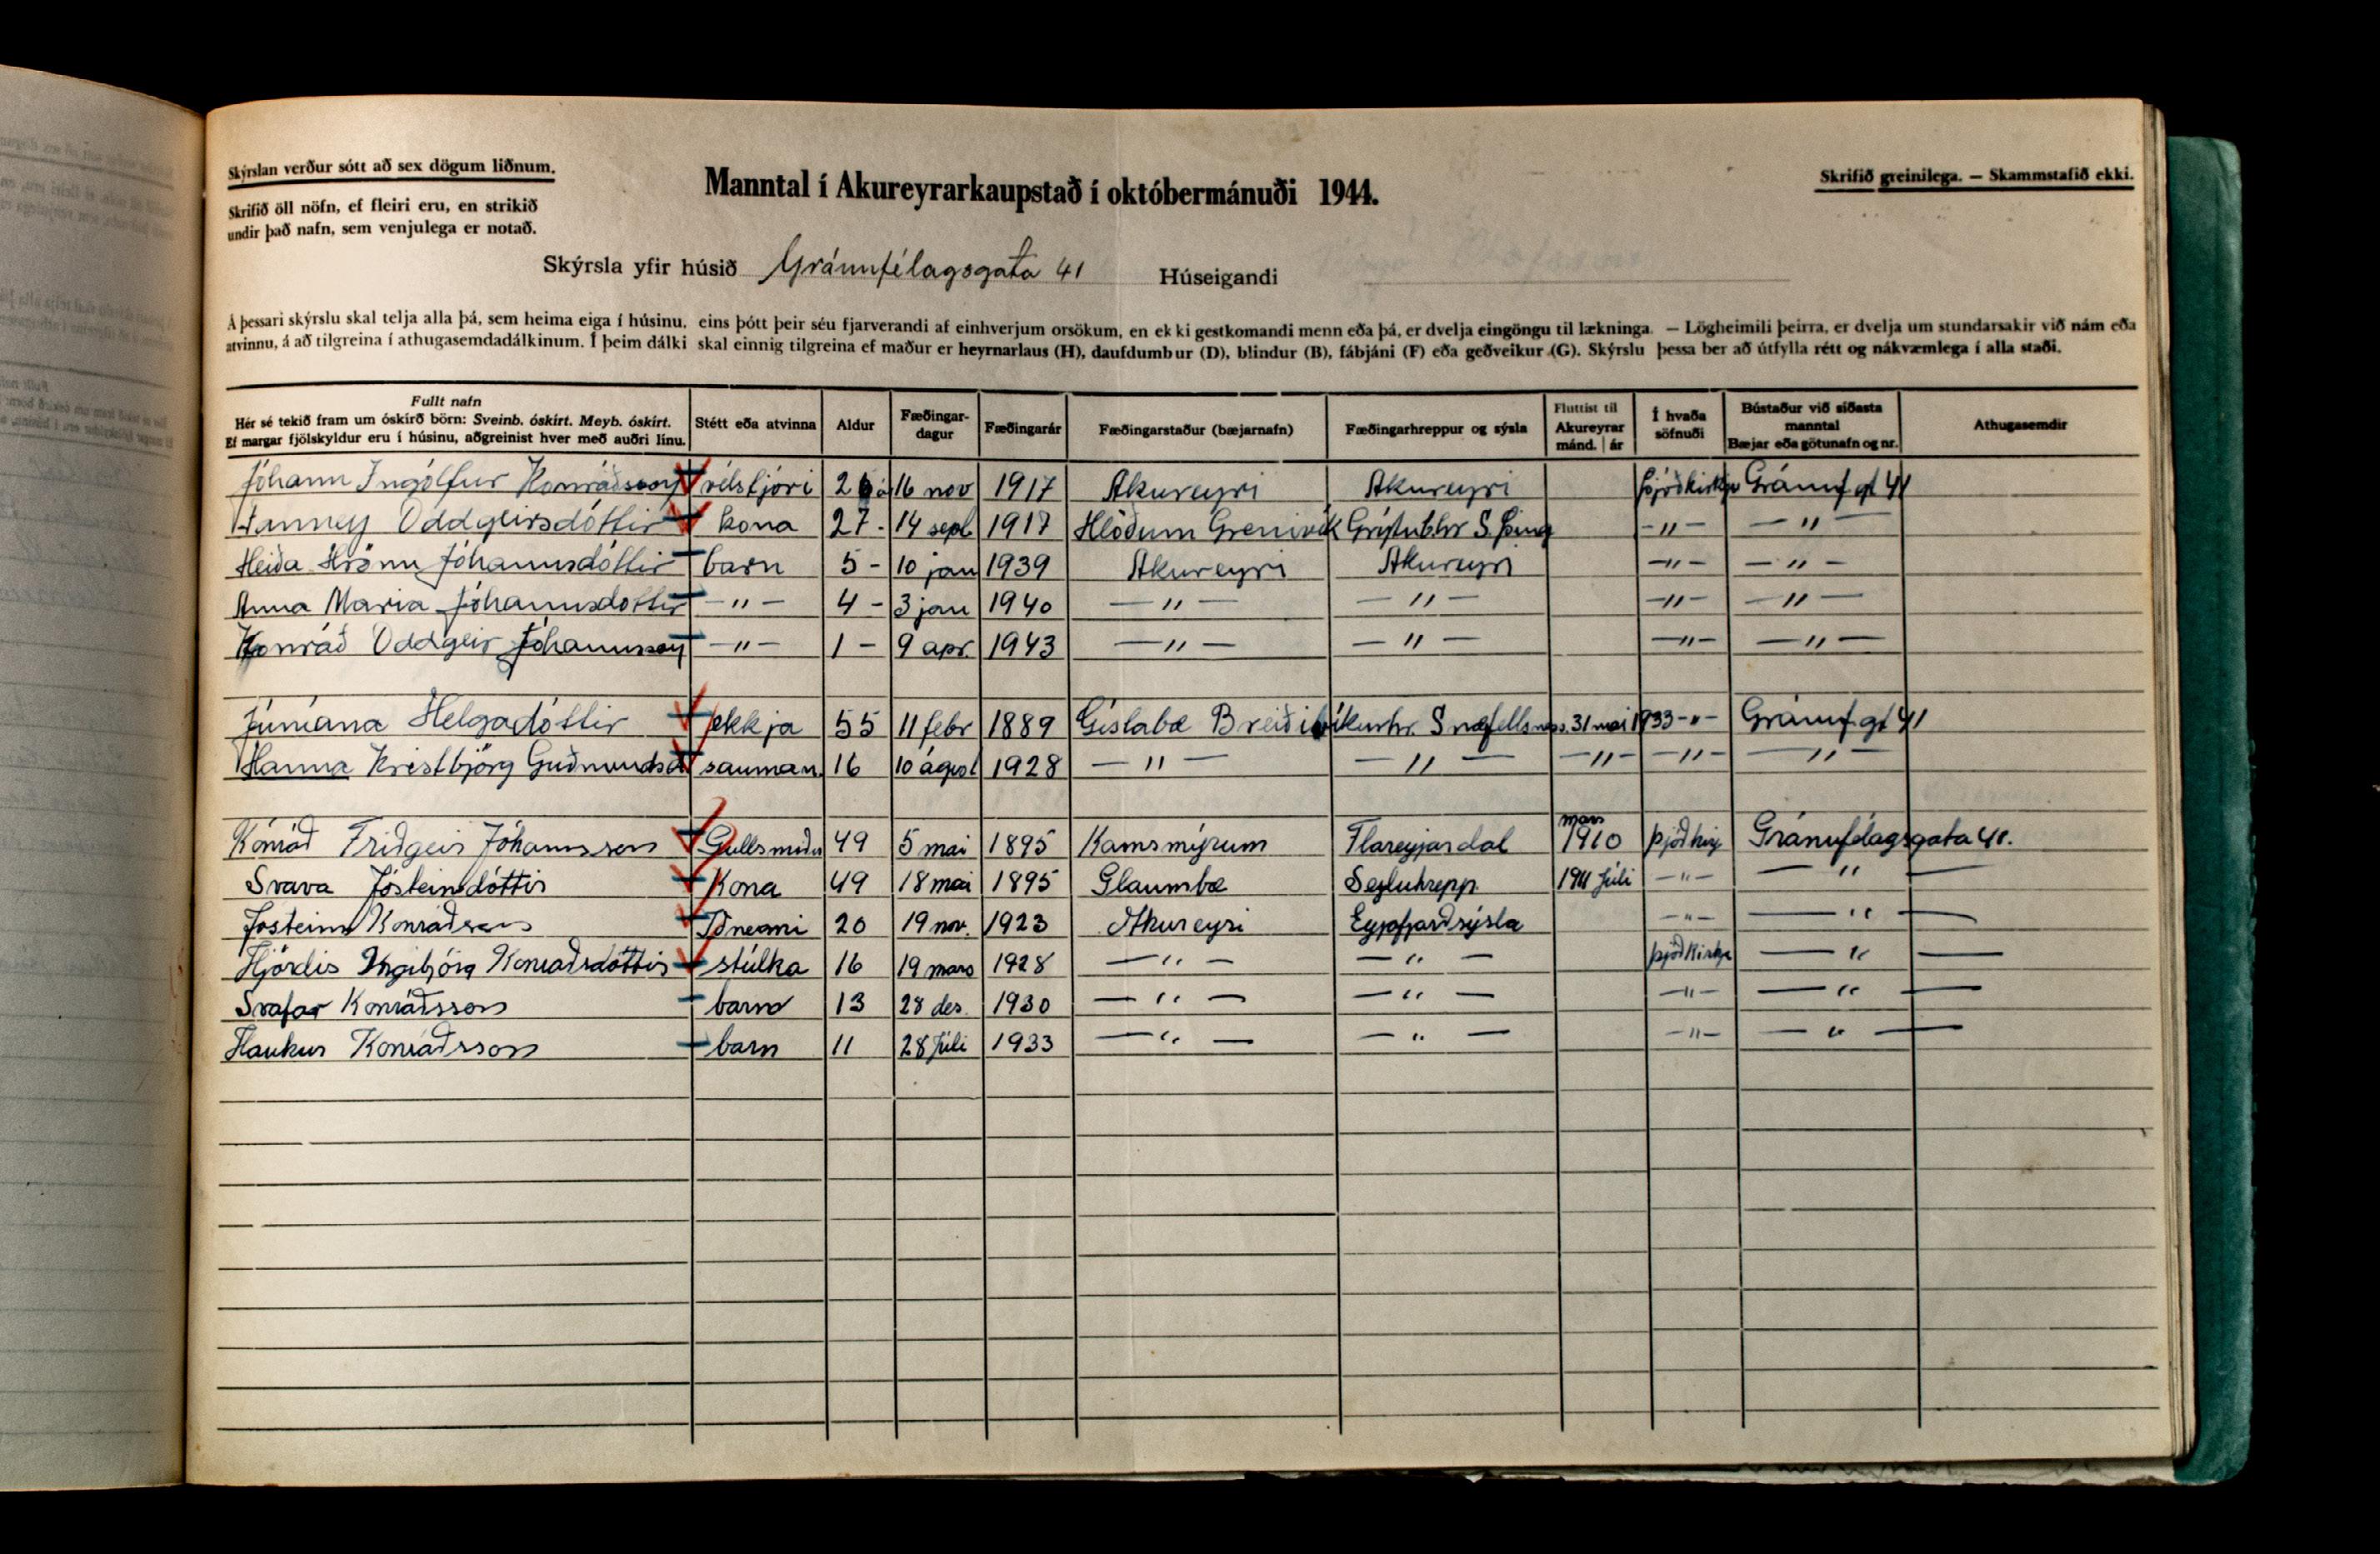 Skýrslan verður sótt að sex dögum liðnum.
Skrifið öll nöfn, ef fleiri eru, en strikið
undir það nafn, sem venjulega er notað.
Manntal í Akureyrarkaupstað í októbermánuði 1944.
Skrifið greinilega. — Skammstafið ekki.
Skýrsla yfir húsið Gránufélagsgata 41 Húseigandi
Á þessari skýrslu skal telja alla þá, sem heima eiga í húsinu, eins þótt þeir séu fjarverandi af einhverjum orsökum, en ekki gestkomandi menn eða þá, er dvelja eingöngu til lækninga. — Lögheimili þeirra, er dvelja um stundarsakir við nám eða
atvinnu, á að tilgreina í athugasemdadálkinum. Í þeim dálki skal einnig tilgreina ef maður er heyrnarlaus (H), daufdumbur (D), blindur (B), fábjáni (F) eða geðveikur (G). Skýrslu þessa ber að útfylla rétt og nákvæmlega í alla staði.
Fullt nafn
Hér sé tekið fram um óskírð börn: Sveinb. óskírt. Meyb. óskírt.
Ef margar fjölskyldur eru í húsinu, aðgreinist hver með auðri línu.
Stétt eða atvinna
Aldur
Fæðingar-
dagur
Fæðingarár
Fæðingarstaður (bæjarnafn)
Fæðingarhreppur og sýsla
Fluttist til
Akureyrar
mánd. | ár
Í hvaða
söfnuði
Bústaður við síðasta
manntal
Bæjar eða götunafn og nr.
Athugasemdir
Jóhann Ingólfur Konráðsson vélstjóri 26 á 16 nov 1917 Akureyri Akureyri þjóðkirkju Gránuf.gt 41
Fanney Oddgeirsdóttir kona 27 - 14 sept 1917 Hlöðum Grenivík Grýtubhr S. Þing -"- -"-
Heiða Hrönn Jóhannsdóttir barn 5 - 10 jan 1939 Akureyri Akureyri -"- -"-
Anna Maria Jóhannsdóttir -"- 4 - 3 jan 1940 -"- -"- -"- -"-
Konráð Oddgeir Jóhannsson -"- 1 - 9 apr. 1943 -"- -"- -"- -"-
Júníana Helgadóttir ekkja 55 11 febr 1889 Gíslabæ Breiðivíkurhr. Snæfellsness. 31 mai 1933 -"- Gránuf.gt 41
Hanna Kristbjörg Guðmundsd sauman. 16 10 ágúst 1928 -"- -"- -"- -"- -"-
Konráð Friðgeir Jóhannsson Gullsmiður 49 5 mai 1895 Kamsmýrum Flateyjardal mars 1910 þjóðkirj Gránufélagsgata 41.
Svava Jósteinsdóttir Kona 49 18 mai 1895 Glaumbæ Seyluhrepp. 1911 Júli -"- -"-
Jósteinn Konráðsson Iðnemi 20 19 nov. 1923 Akureyri Eyjafjarðsýsla -"- -"-
Hjördis Ingibjörg Konráðsdóttir stúlka 16 19 mars 1928 -"- -"- þjóðkirkje -"-
Svafar Konráðsson barn 13 28 des. 1930 -"- -"- -"- -"-
Haukur Konráðsson barn 11 28 Júli 1933 -"- -"- -"- -"-